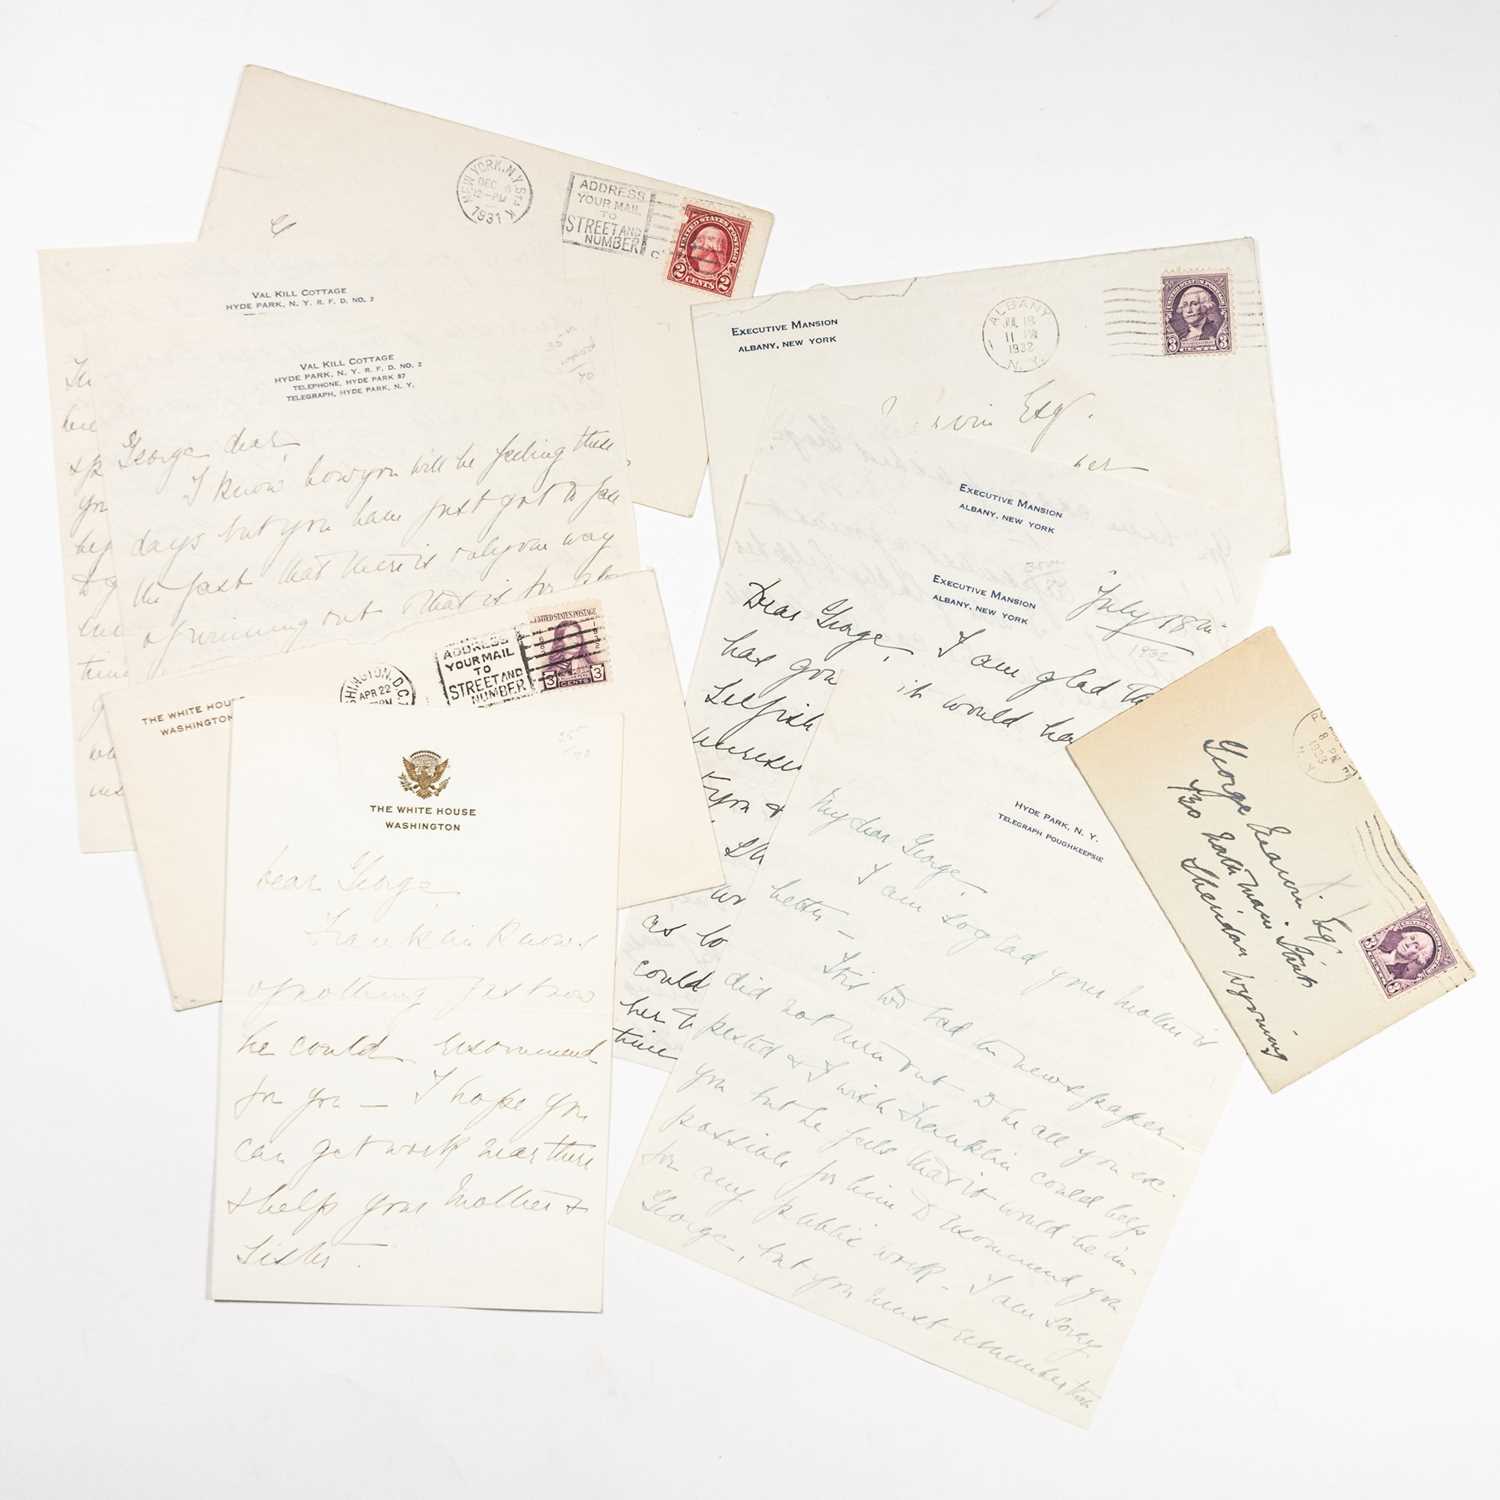 NEW YORK, N.Y. STA. K
DEC
12-PM
1931
ADDRESS
YOUR MAIL
TO
STREET AND
NUMBER
UNITED STATES POSTAGE
2 CENTS 2
VAL KILL COTTAGE
HYDE PARK, N. Y. R. F. D. NO. 2
VAL KILL COTTAGE
HYDE PARK, N. Y. R. F. D. NO. 2
TELEPHONE, HYDE PARK 57
TELEGRAPH, HYDE PARK, N. Y.
George dear,
I know how you will be feeling these
days but you have just got to face
the fact that there is only one way
of winning out & that is
EXECUTIVE MANSION
ALBANY, NEW YORK
ALBANY
JUL 18
11 PM
1932
N.Y.
3 3
Esq.
EXECUTIVE MANSION
ALBANY, NEW YORK
EXECUTIVE MANSION
ALBANY, NEW YORK
July 18th
1932
Dear George, I am glad
has gon
it would ha
selfish
as to
could
her to
time
THE WHITE HOUS
WASHINGTON
SHINGTON, D.C.
APR 22
PM
ADDRESS
YOUR MAIL
TO
STREET AND
NUMBER
UNITED STATES POSTAGE
3 CENTS 3
THE WHITE HOUSE
WASHINGTON
Dear George,
Franklin knows
of nothing just now
he could recommend
for you – I hope you
can get work near there
& help your Mother &
Sister.
HYDE PARK, N. Y.
TELEGRAPH POUGHKEEPSIE
My dear George,
I am so glad your mother is
better – It is too bad the newspaper
did not turn out to be all you ex-
pected & I wish Franklin could help
you but he feels that it would be im-
possible for him to recommend you
for any public work – I am sorry
George, but you must remember that
8 PM
1933
George Marvin Esq.
730 North Main Street
Sheridan Wyoming
3 3